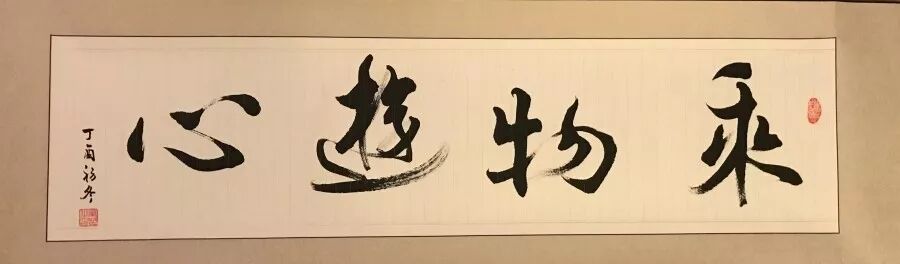 乘物遊心
丁酉初冬